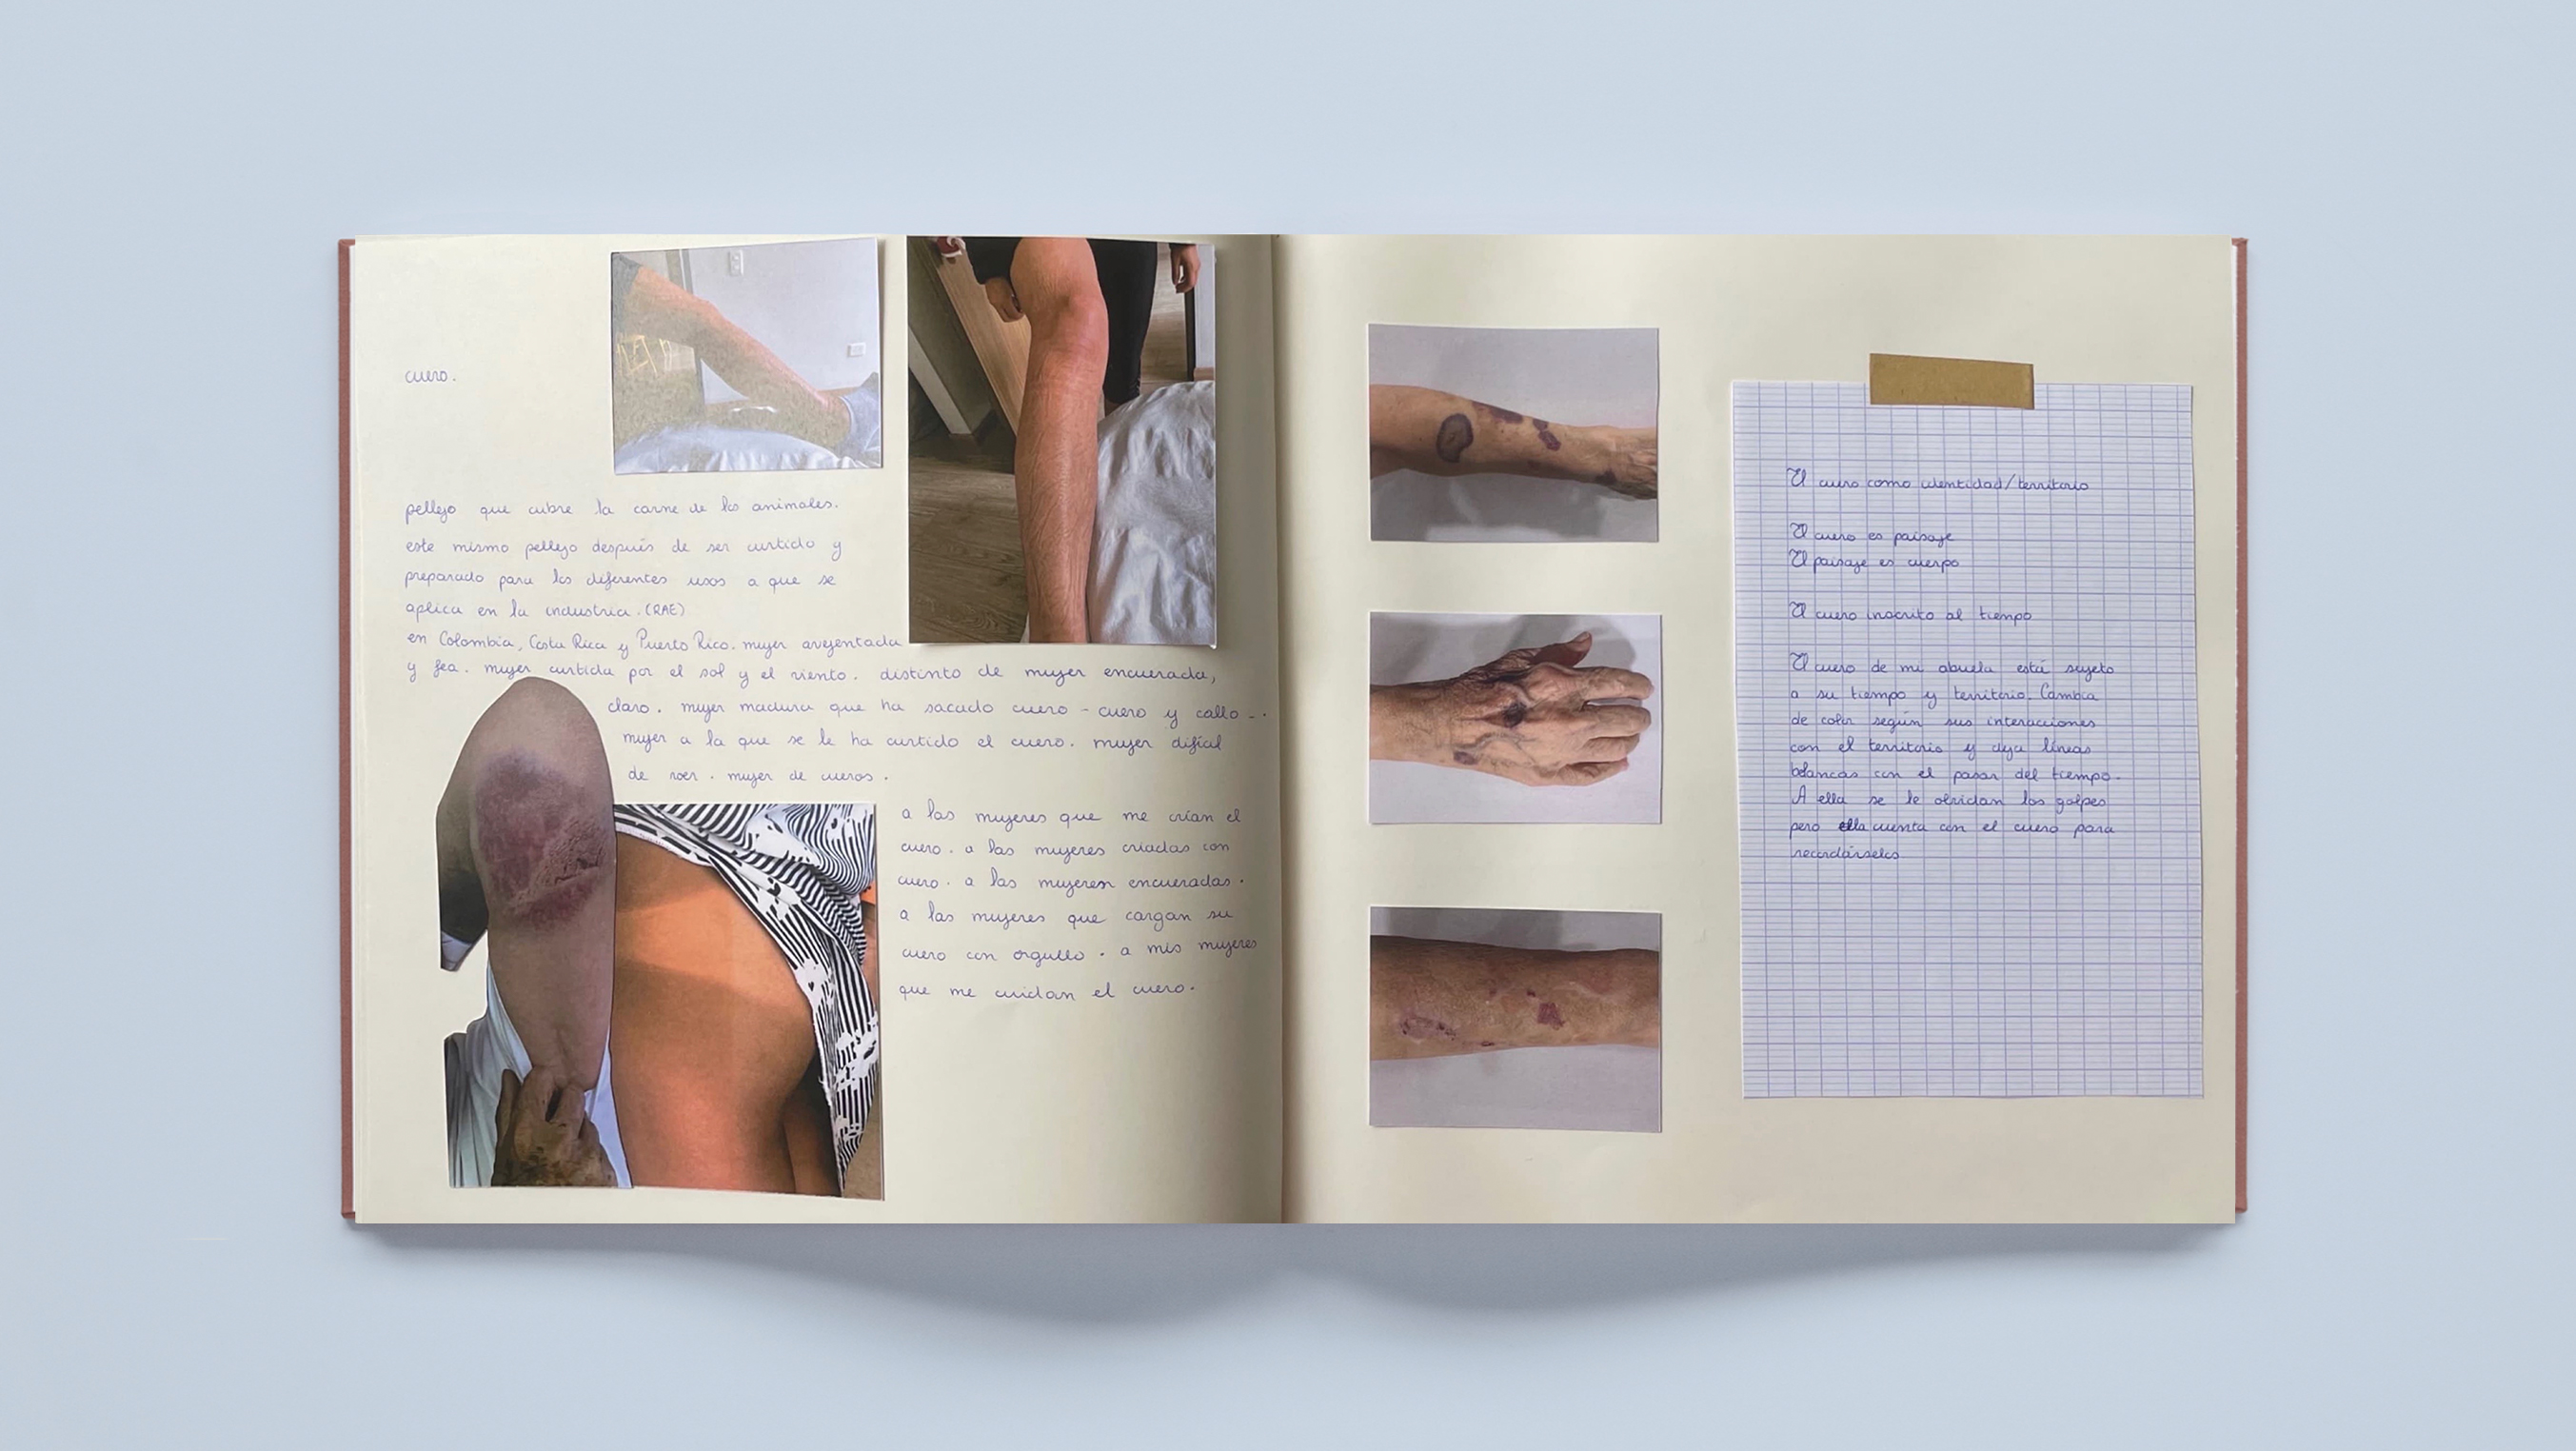 cuero.
pellejo que cubre la carne de los animales.
este mismo pellejo después de ser curtido y
preparado para los diferentes usos a que se
aplica en la industria. (RAE)
en Colombia, Costa Rica y Puerto Rico. mujer avejentada
y fea. mujer curtida por el sol y el viento. distinto de mujer encuerada,
claro. mujer madura que ha sacado cuero - cuero y callo -.
mujer a la que se le ha curtido el cuero. mujer difícil
de roer. mujer de cueros.
a las mujeres que me crían el
cuero. a las mujeres criadas con
cuero. a las mujeres encueradas.
a las mujeres que cargan su
cuero con orgullo. a mis mujeres
que me cuidan el cuero.
El cuero como identidad/territorio
El cuero es paisaje
El paisaje es cuerpo
El cuero inscrito al tiempo
El cuero de mi abuela está sujeto
a su tiempo y territorio. Cambia
de color según sus interacciones
con el territorio y deja líneas
blancas con el pasar del tiempo.
A ella se le olvidan los golpes
pero ella cuenta con el cuero para
recordárselos